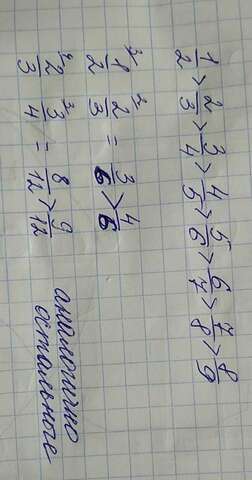 1/2 > 2/3 > 3/4 > 4/5 > 5/6 > 6/7 > 7/8 > 8/9
1³/2 2²/3 = 3/6 > 4/6
2⁴/3 3³/4 = 8/12 > 9/12 аналогично
остальное